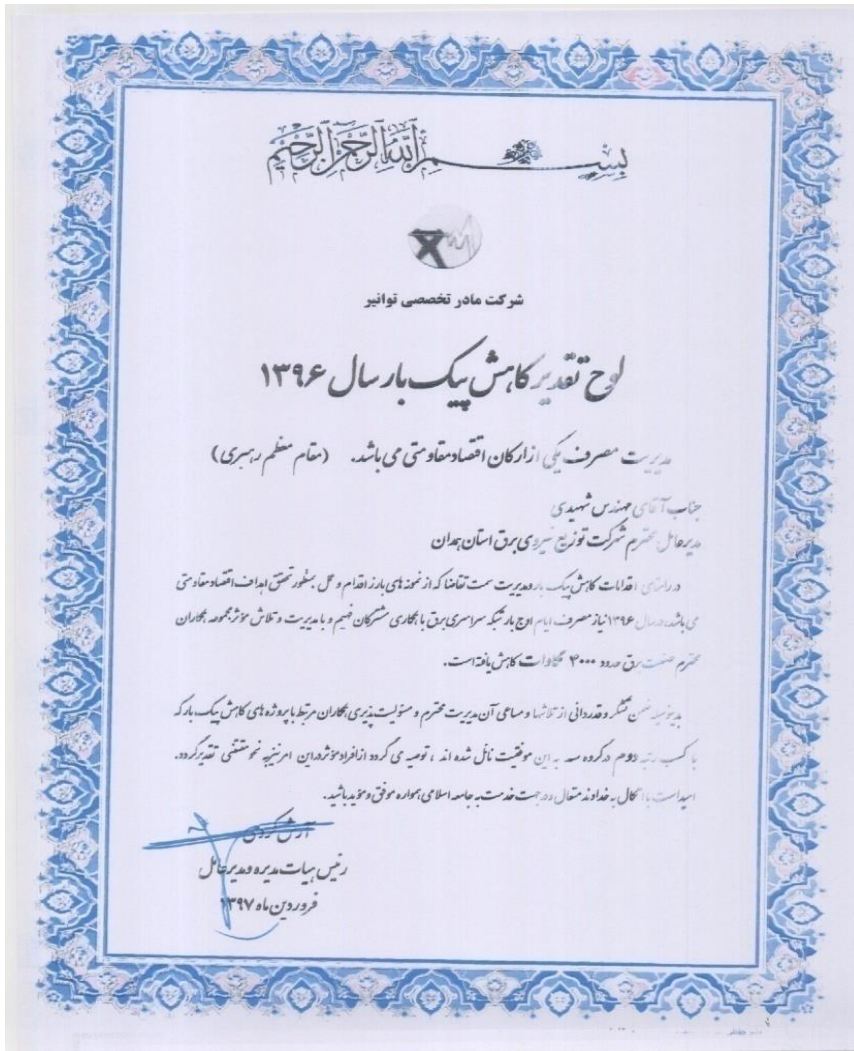 بسم الله الرحمن الرحیم
شرکت مادر تخصصی توانیر
لوح تقدیر کاهش پیک بار سال ۱۳۹۶
مدیریت مصرف یکی از ارکان اقتصاد مقاومتی می باشد. (مقام معظم رهبری)
جناب آقای مهندس شهیدی
مدیرعامل محترم شرکت توزیع نیروی برق استان همدان
در راستای اقدامات کاهش پیک بار و مدیریت سمت تقاضا که از نمونه های بارز اقدام و عمل بمنظور تحقق اهداف اقتصاد مقاومتی
می باشد، در سال ۱۳۹۶ نیاز مصرف ایام اوج بار شبکه سراسری برق با همکاری مشترکان فهیم و با مدیریت و تلاش مؤثر مجموعه همکاران
محترم صنعت برق حدود ۴۰۰۰ مگاوات کاهش یافته است.
بدینوسیله ضمن تشکر و قدردانی از تلاشها و مساعی آن مدیریت محترم و مسئولیت پذیری همکاران مرتبط با پروژه های کاهش پیک بار که
با کسب رتبه دوم در گروه سه به این موفقیت نائل شده اند ، توصیه می گردد از افراد مؤثر در این امر نیز به نحو مقتضی تقدیر گردد.
امید است با اتکال به خداوند متعال در جهت خدمت به جامعه اسلامی همواره موفق و مؤید باشید.
آرش کردی
رئیس هیات مدیره و مدیرعامل
فروردین ماه ۱۳۹۷